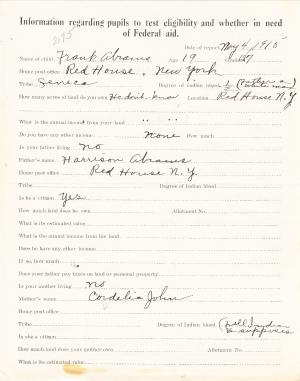 Information regarding pupils to test eligibility and whether in need
of Federal aid.
Date of report May 4, 1915
Name of child, Frank Abrams Age 19 Grade
Home post office Red House, New York
Tribe Seneca Degree of Indian blood, 1/2 (Father a white man)
How many acres of land do you own He don't know Location, Red House N.Y.
What is the annual income from your land " "
Do you have any other income None How much
Is your father living? No
Father's name Harrison Abrams
Home post office Red House N.Y.
Tribe Degree of Indian blood
Is he a citizen, Yes
How much land does he own, Allotment No.
What is its estimated value,
What is the annual income from his land
Does he have any other income
If so, how much
Does your father pay taxes on land or personal property,
Is your mother living? No
Mother's name, Cordelia John
Home post office
Tribe Degree of Indian blood, (Full Indian he supposes
Is she a citizen,
How much land does your mother own, Allotment No.
What is its estimated value,